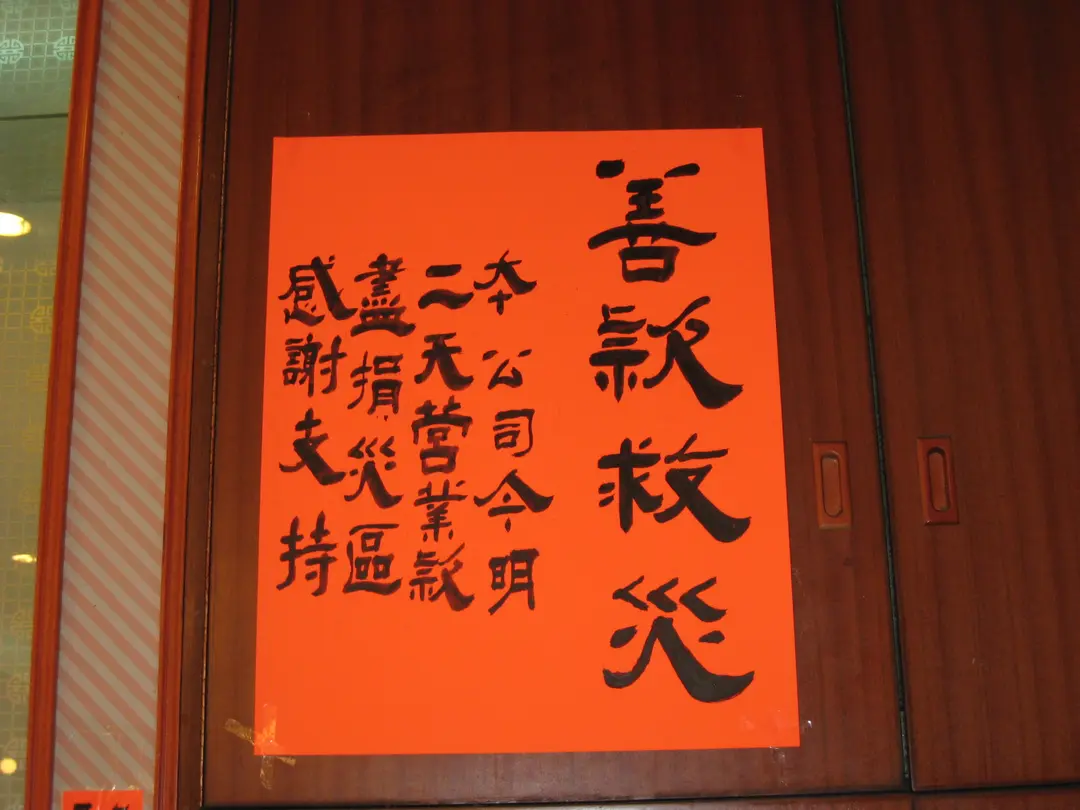 善款救災
本公司今明
二天營業款
盡捐災區
感謝支持